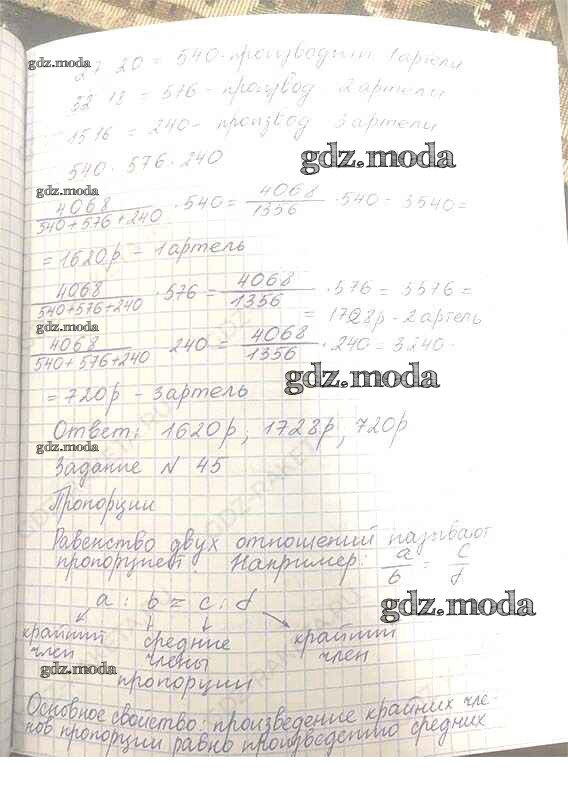 gdz.moda
27 20 = 540 - производит 1 артели
32 18 = 576 - производ 2 артели
15 16 = 240 - производ 3 артели
540 · 576 · 240
gdz.moda
gdz.moda
4068 / 540+576+240 · 540 = 4068 / 1356 · 540 = 3540 =
= 1620р - 1 артель
4068 / 540+576+240 · 576 = 4068 / 1356 · 576 = 3576 =
= 1728р - 2 артель
gdz.moda
4068 / 540+576+240 240 = 4068 / 1356 · 240 = 3240 -
= 720р - 3 артель
gdz.moda
Ответ: 1620р; 1728р, 720р
gdz.moda
Задание N 45
Пропорции
Равенство двух отношений называют
пропорцией. Например: a/b = c/d
gdz.moda
a : b = c : d
крайний средние крайний
член члены член
gdz.moda
пропорции
Основное свойство: произведение крайних чле-
нов пропорции равно произведению средних